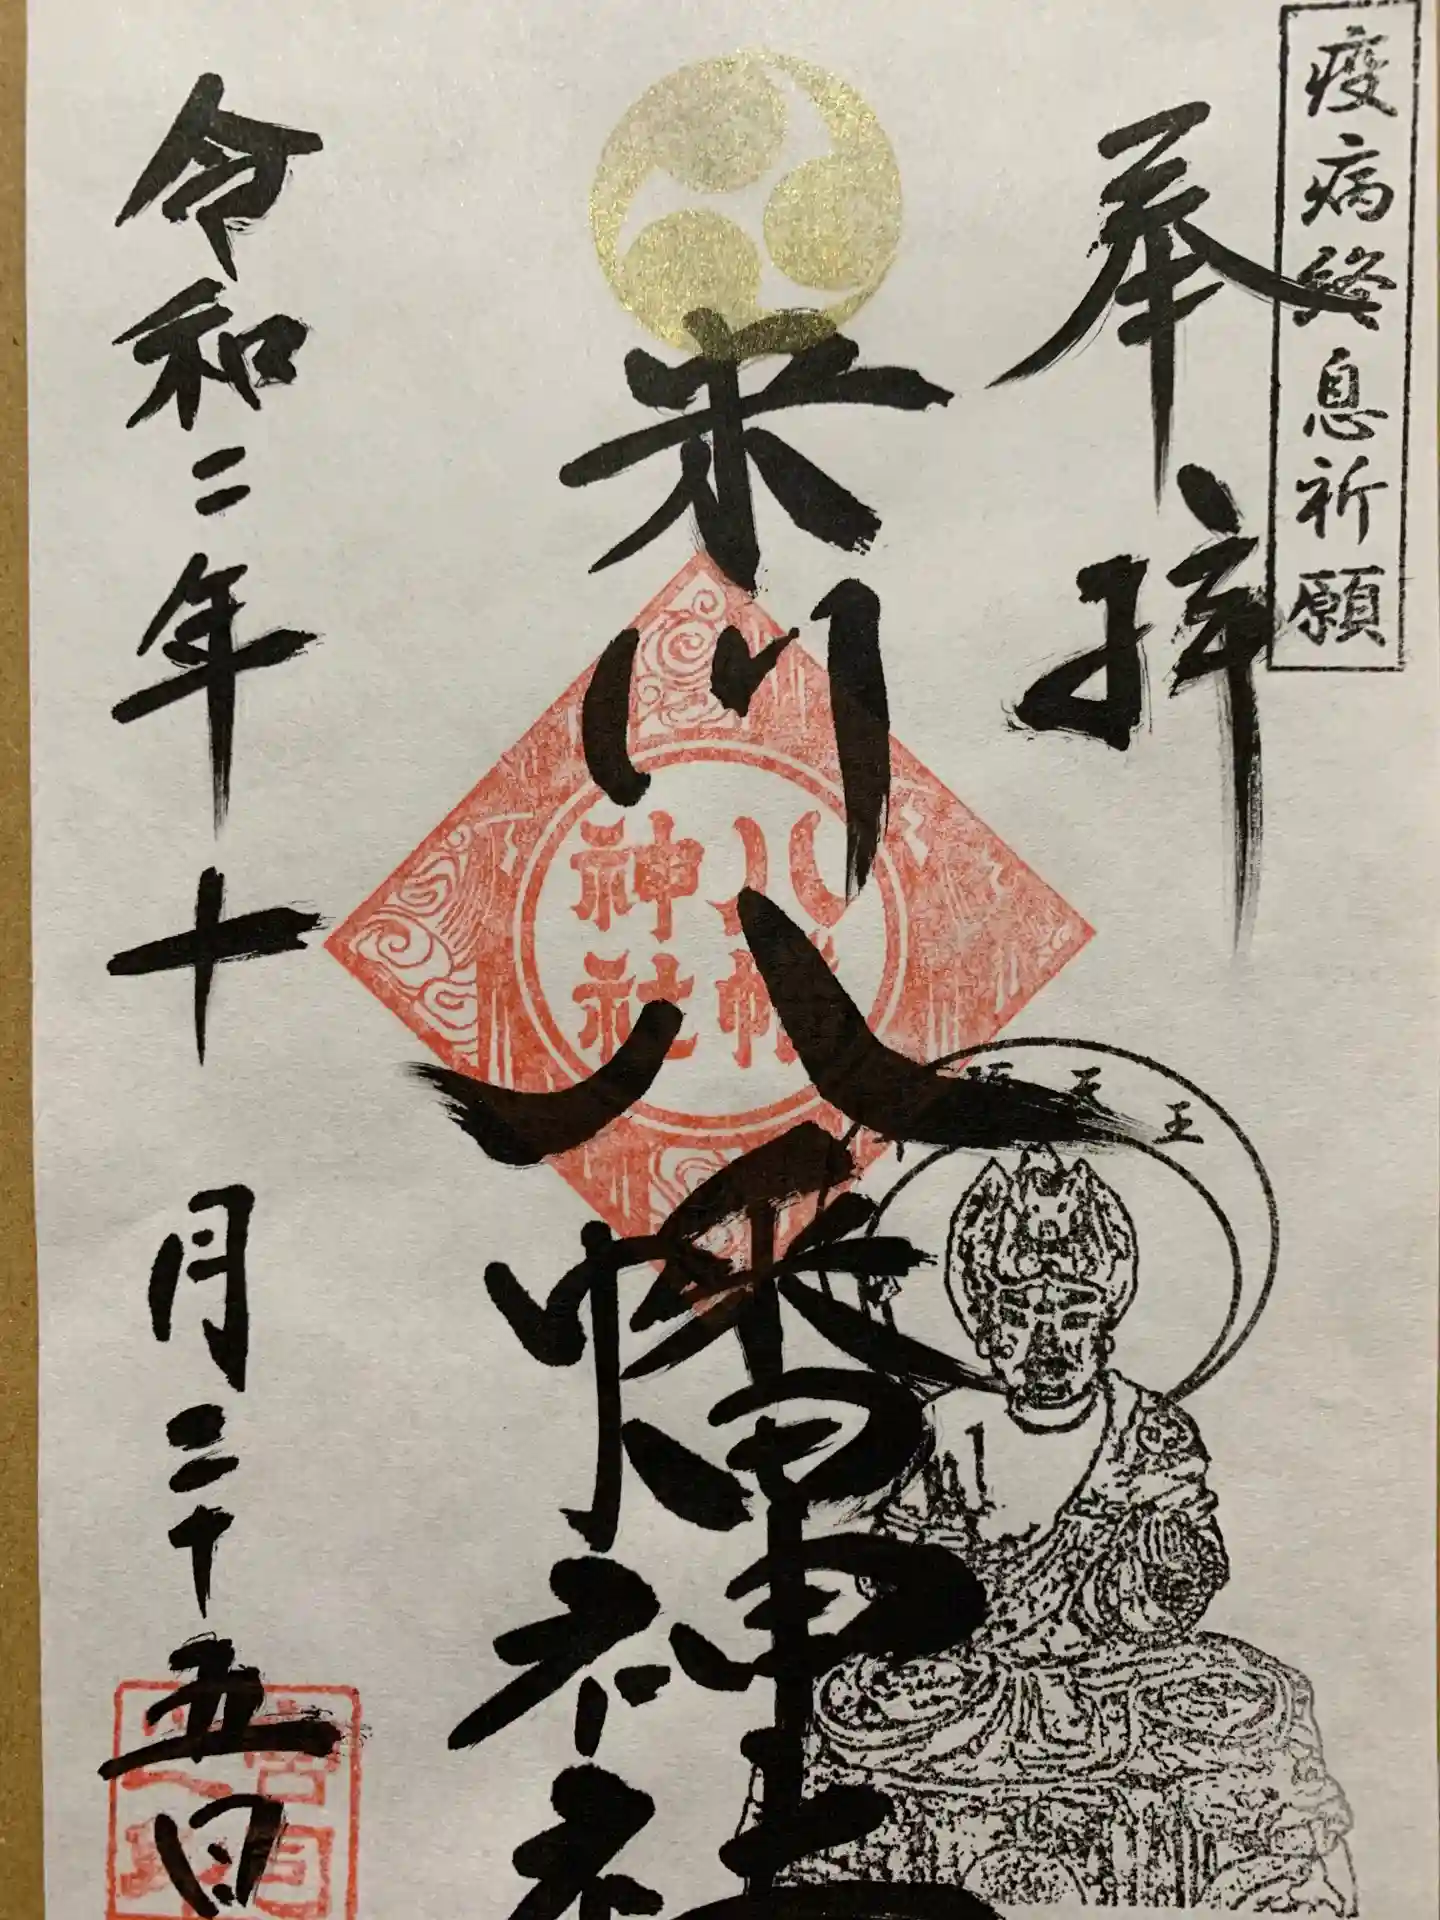 疫病終息祈願
奉拝
米川八幡神社
八幡
神社
天王
令和二年十月二十五日